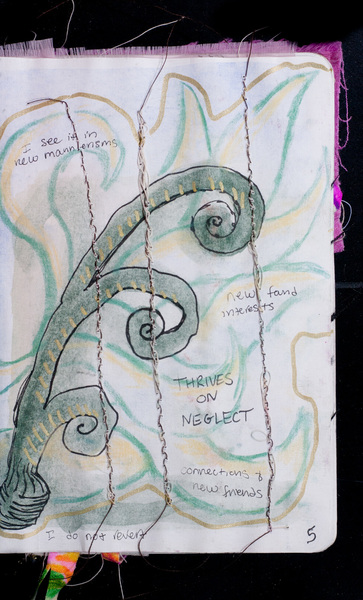 I see it in
new mannerisms
new found
interests
THRIVES
ON
NEGLECT
connections &
new friends
I do not revert
5